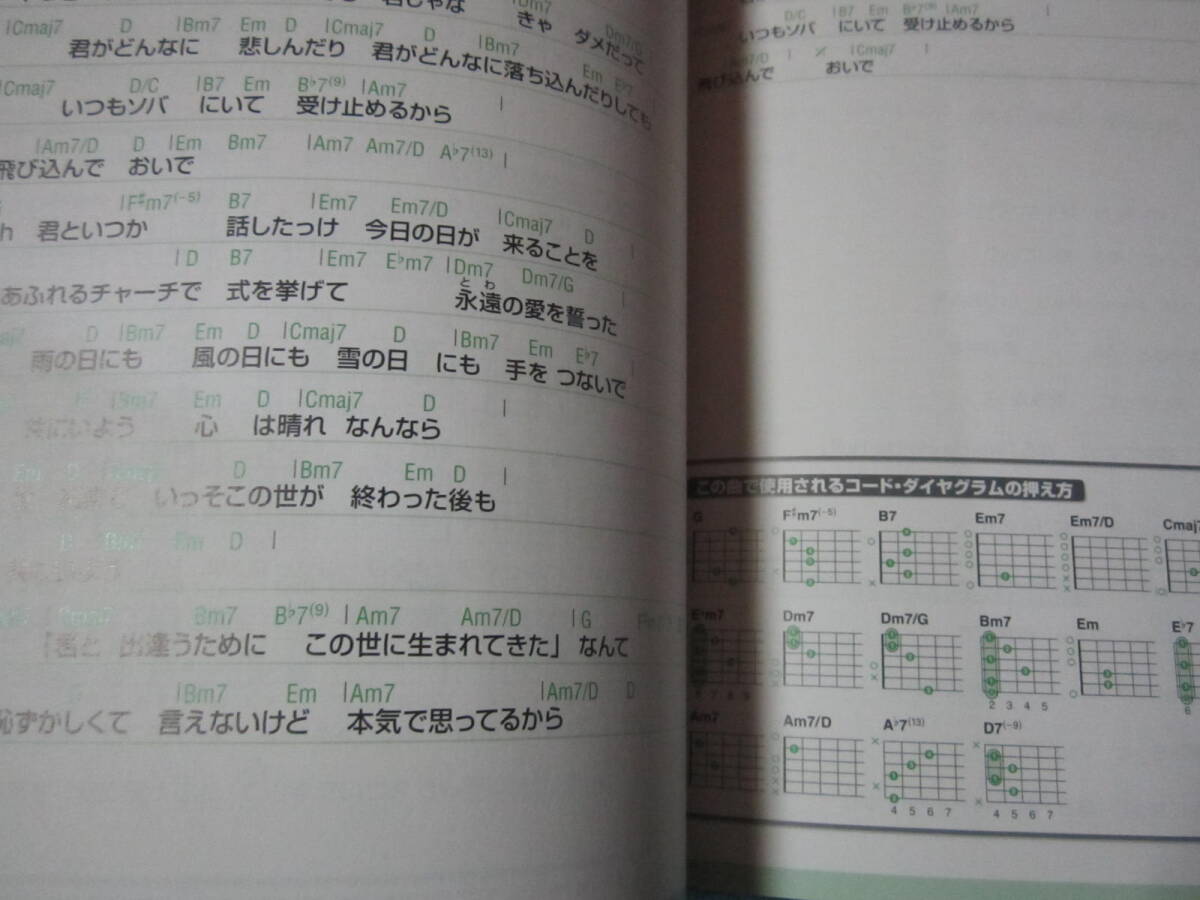 きゃ ダメだって
|Cmaj7 D |Bm7 Em D |Cmaj7 D |Bm7 Em E♭7
君がどんなに 悲しんだり 君がどんなに落ち込んだりしても
|Cmaj7 D/C |B7 Em B♭7(9) |Am7 |
いつもソバ にいて 受け止めるから
|Am7/D D |Em Bm7 |Am7 Am7/D A♭7(13) |
飛び込んで おいで
|F♯m7(-5) B7 |Em7 Em7/D |Cmaj7 D |
君といつか 話したっけ 今日の日が 来ることを
|D B7 |Em7 E♭m7 |Dm7 Dm7/G |
とわ
あふれるチャーチで 式を挙げて 永遠の愛を誓った
D |Bm7 Em D |Cmaj7 D |Bm7 Em E♭7 |
雨の日にも 風の日にも 雪の日 にも 手を つないで
|Bm7 Em D |Cmaj7 D |
心 は晴れ なんなら
Em D D |Bm7 Em D |
いっそこの世が 終わった後も
D Bm7 Em D |
Cmaj7 Bm7 B♭7(9) |Am7 Am7/D |G
「君と 出逢うために この世に生まれてきた」 なんて
G |Bm7 Em |Am7 |Am7/D D
恥ずかしくて 言えないけど 本気で思ってるから
D/C |B7 Em B♭7(9) |Am7 |
いつもソバ にいて 受け止めるから
Am7/D | × |Cmaj7 |
飛び込んで おいで
この曲で使用されるコード・ダイヤグラムの押え方
G F♯m7(-5) B7 Em7 Em7/D Cmaj7
E♭m7 Dm7 Dm7/G Bm7 Em E♭7
7 8 9 2 3 4 5 6
Am7 Am7/D A♭7(13) D7(-9)
4 5 6 7 4 5 6 7